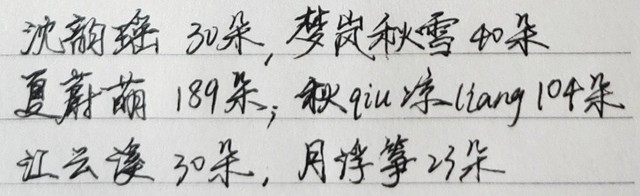 沈韵瑶 30朵, 梦岚秋雪 40朵
夏蔚萌 189朵; 秋qiu凉liang 104朵
江云溪 30朵, 月诗筝 23朵